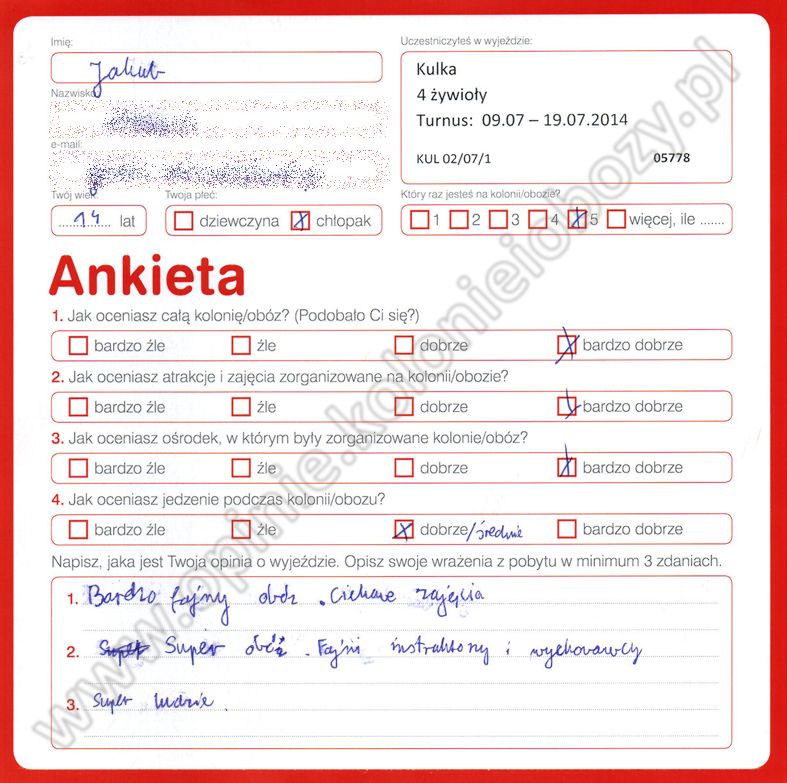 Imię:
Uczestniczyłeś w wyjeździe:
Jakub
Kulka
4 żywioły
Turnus: 09.07 – 19.07.2014
KUL 02/07/1 05778
Nazwisko:
e-mail:
Twój wiek:
Twoja płeć:
Który raz jesteś na kolonii/obozie?
14 lat
dziewczyna X chłopak
1 2 3 4 X 5 więcej, ile .......
Ankieta
1. Jak oceniasz całą kolonię/obóz? (Podobało Ci się?)
bardzo źle źle dobrze X bardzo dobrze
2. Jak oceniasz atrakcje i zajęcia zorganizowane na kolonii/obozie?
bardzo źle źle dobrze X bardzo dobrze
3. Jak oceniasz ośrodek, w którym były zorganizowane kolonie/obóz?
bardzo źle źle dobrze X bardzo dobrze
4. Jak oceniasz jedzenie podczas kolonii/obozu?
bardzo źle źle X dobrze/średnie bardzo dobrze
Napisz, jaka jest Twoja opinia o wyjeździe. Opisz swoje wrażenia z pobytu w minimum 3 zdaniach.
1. Bardzo fajny obóz. Ciekawe zajęcia
2. Super obóz. Fajni instruktorzy i wychowawcy
3. Super ludzie.
www.opinie.kolonieiobozy.pl